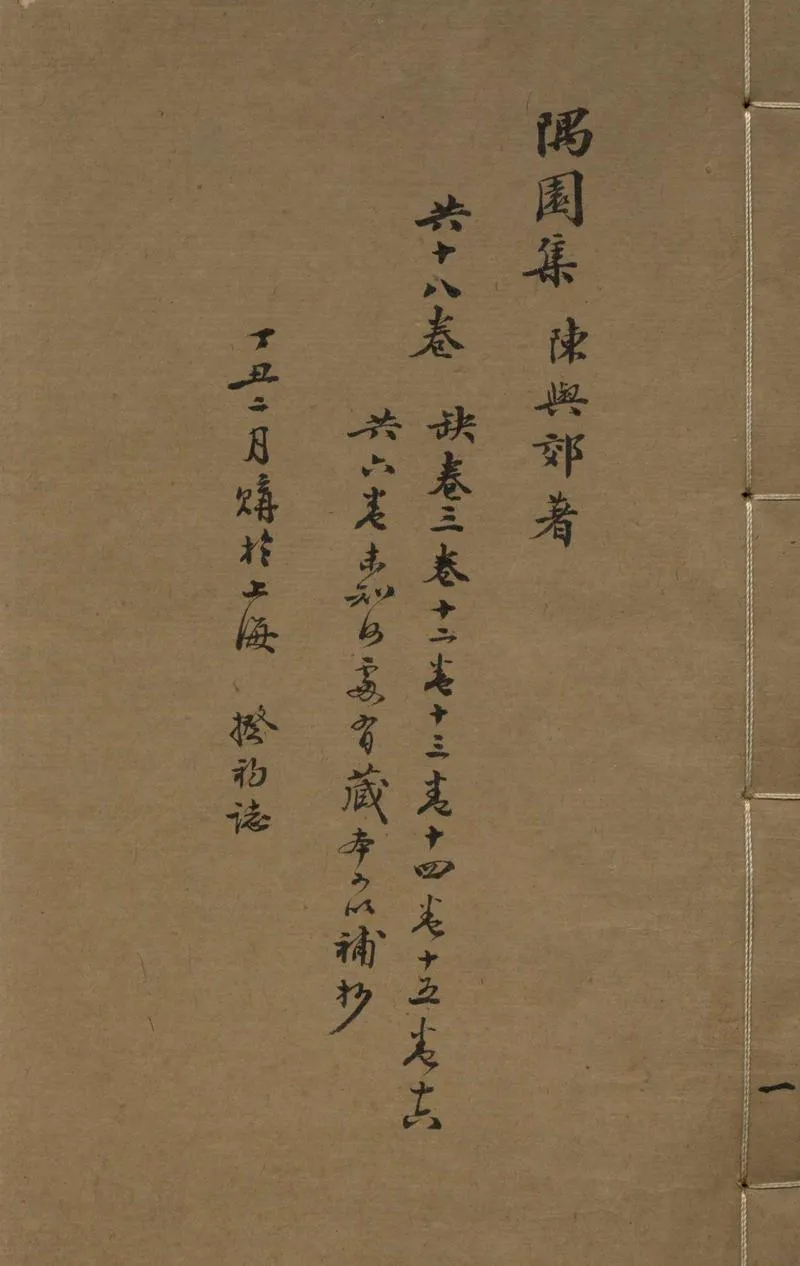 隅園集 陳與郊著
共十八卷
缺卷三卷十二卷十三卷十四卷十五卷十六
共六卷未知何處有藏本可以補抄
丁丑二月購於上海 揆初誌
一